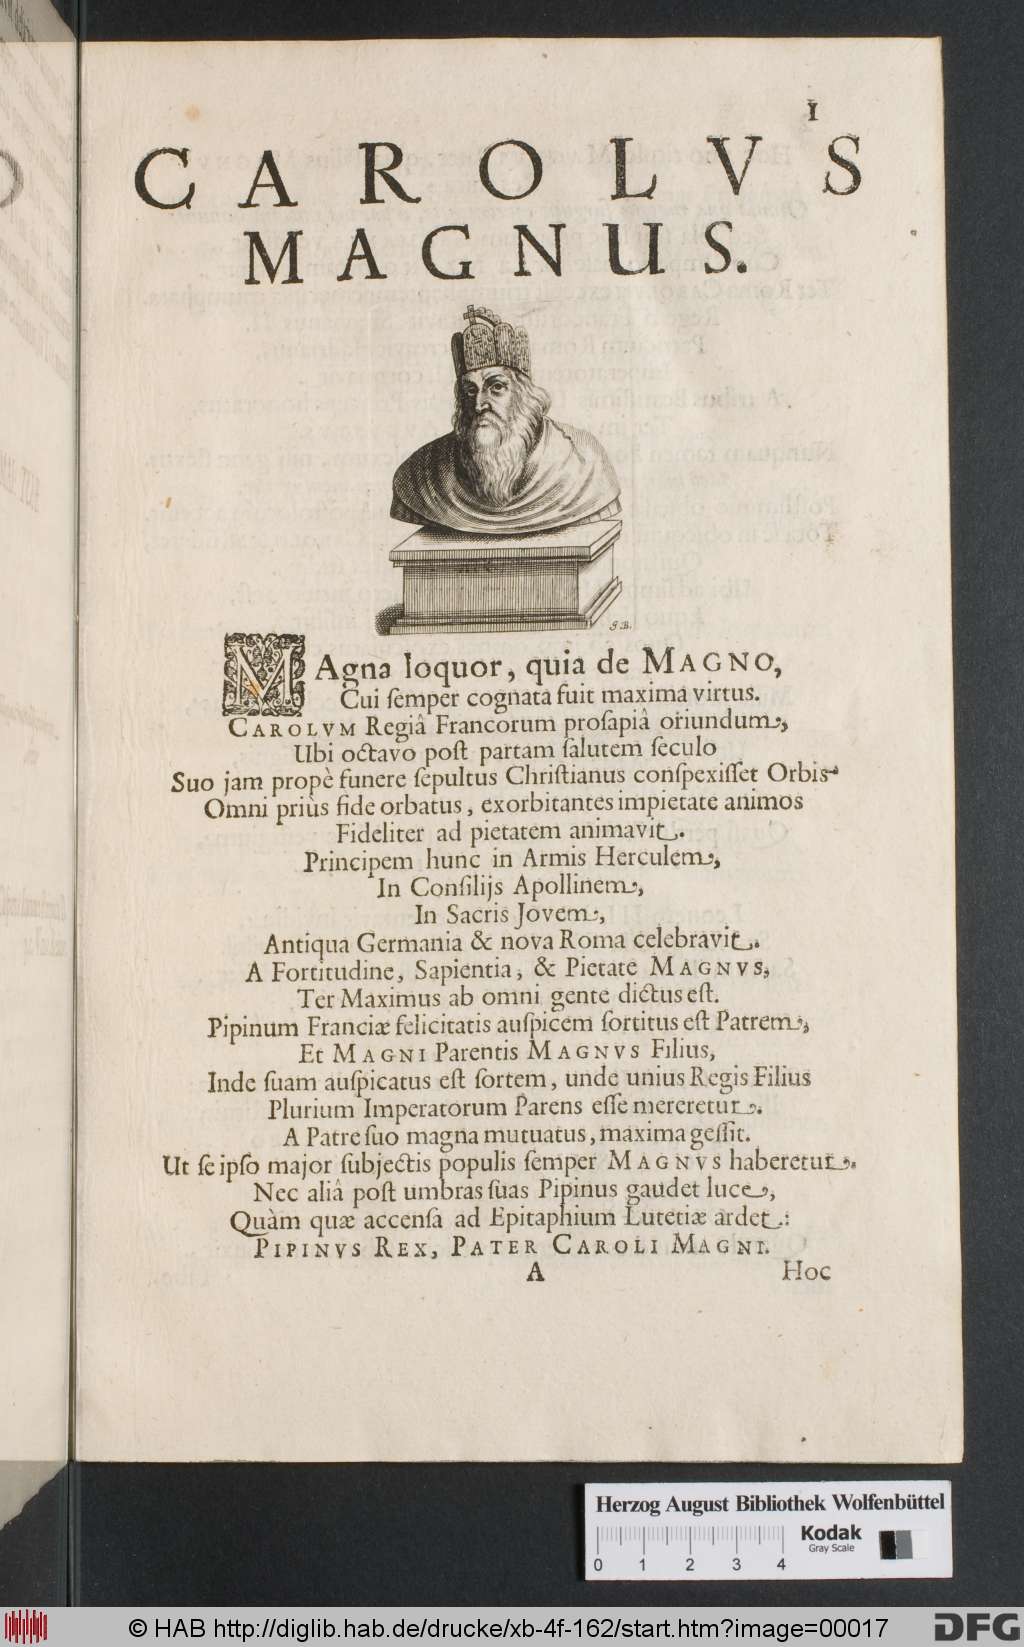 1
CAROLVS
MAGNUS.
J B.
MAgna loquor, quia de MAGNO,
Cui ſemper cognata fuit maxima virtus.
CAROLVM Regiâ Francorum proſapiâ oriundum,
Ubi octavo poſt partam ſalutem ſeculo
Suo jam propè funere ſepultus Chriſtianus conſpexiſſet Orbis
Omni priùs fide orbatus, exorbitantes impietate animos
Fideliter ad pietatem animavit.
Principem hunc in Armis Herculem,
In Conſilijs Apollinem,
In Sacris Jovem,
Antiqua Germania & nova Roma celebravit.
A Fortitudine, Sapientia, & Pietate MAGNVS,
Ter Maximus ab omni gente dictus eſt.
Pipinum Franciæ felicitatis auſpicem ſortitus eſt Patrem,
Et MAGNI Parentis MAGNVS Filius,
Inde ſuam auſpicatus eſt ſortem, unde unius Regis Filius
Plurium Imperatorum Parens eſſe mereretur.
A Patre ſuo magna mutuatus, maxima geſſit.
Ut ſe ipſo major ſubjectis populis ſemper MAGNVS haberetur.
Nec aliâ poſt umbras ſuas Pipinus gaudet luce,
Quàm quæ accenſa ad Epitaphium Lutetiæ ardet:
PIPINVS REX, PATER CAROLI MAGNI.
A Hoc
Herzog August Bibliothek Wolfenbüttel
Kodak
Gray Scale
0 1 2 3 4
© HAB http://diglib.hab.de/drucke/xb-4f-162/start.htm?image=00017
DFG